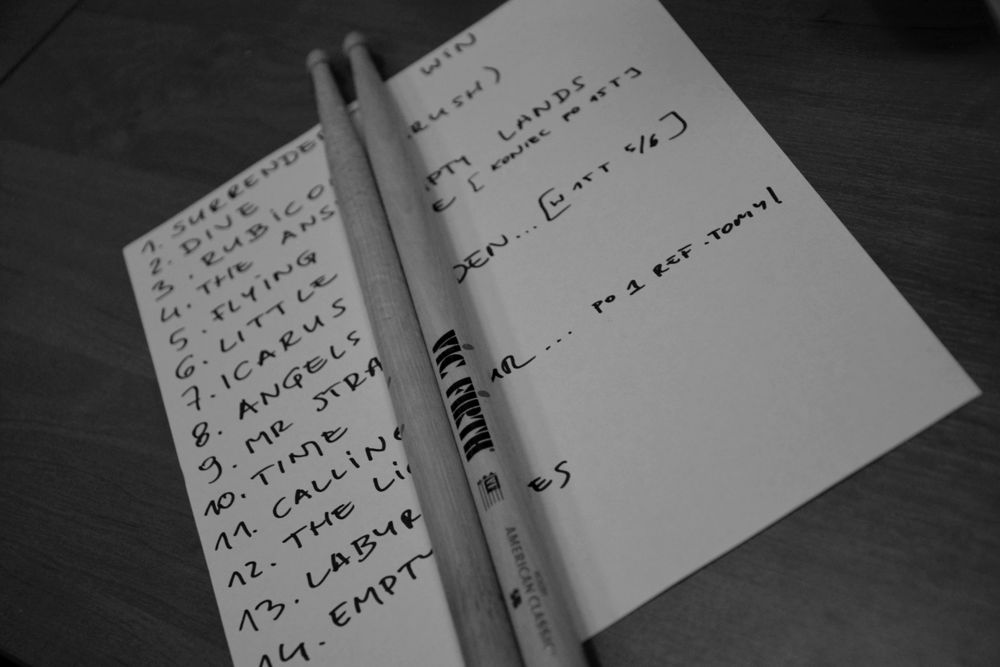 1. SURRENDE WIN
2. DIVE
3. RUBICO RUSH)
4. THE ANS PTY LANDS
5. FLYING E [KONIEC PO 1ST]
6. LITTLE
7. ICARUS
8. ANGELS DEN... [W 1ST 5/6]
9. MR STRA
10. TIME
11. CALLING AR... PO 1 REF. TOMY!
12. THE LI
13. LABYR
14. EMPTY ES
VIC FIRTH
AMERICAN CLASSIC